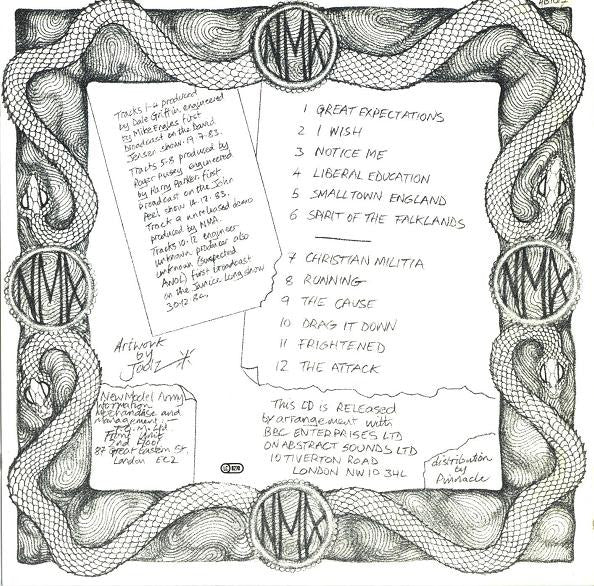 NMA
Tracks 1-4 produced
by Dale Griffin, engineered
by Mike Engles first
broadcast on the David
Jensen show. 19.7.83.
Tracks 5-8 produced by
Roger Pusey engineered
by Harry Parker. first
broadcast on the John
Peel show 14.12.83.
Track 9 unreleased demo
produced by NMA.
Tracks 10-12 engineer
unknown producer also
unknown (suspected
ANOL) first broadcast
on the Janice Long show
30.12.84.
1 GREAT EXPECTATIONS
2 I WISH
3 NOTICE ME
4 LIBERAL EDUCATION
5 SMALLTOWN ENGLAND
6 SPIRIT OF THE FALKLANDS
7 CHRISTIAN MILITIA
8 RUNNING
9 THE CAUSE
10 DRAG IT DOWN
11 FRIGHTENED
12 THE ATTACK
NMA
NMA
Artwork
by
Joolz
New Model Army
information
merchandase and
management:-
Ltd.
2nd floor
87 Great Eastern St.
London EC2
This CD is RELEASED
by arrangement with
BBC ENTERPRISES LTD
ON ABSTRACT SOUNDS LTD
10 TIVERTON ROAD
LONDON NW10 3HL
distribution
by
Pinnacle
NMA